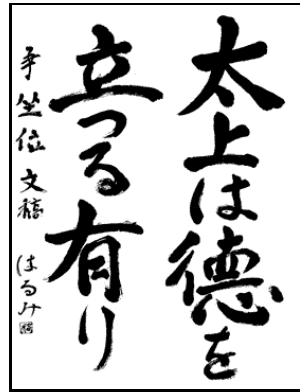 太上は徳を
立つる有り
争坐位文稿 はるみ